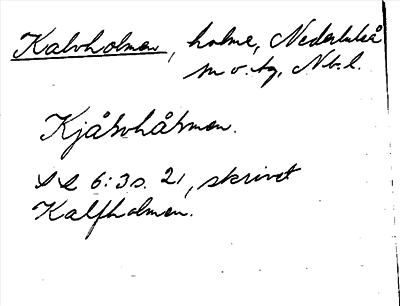 Kalvholmen, holme, Nederluleå
m o. tg, Nb. l.
Kjåhvhåhmen.
S L 6:3 s. 21, skrivet
Kalfholmen.